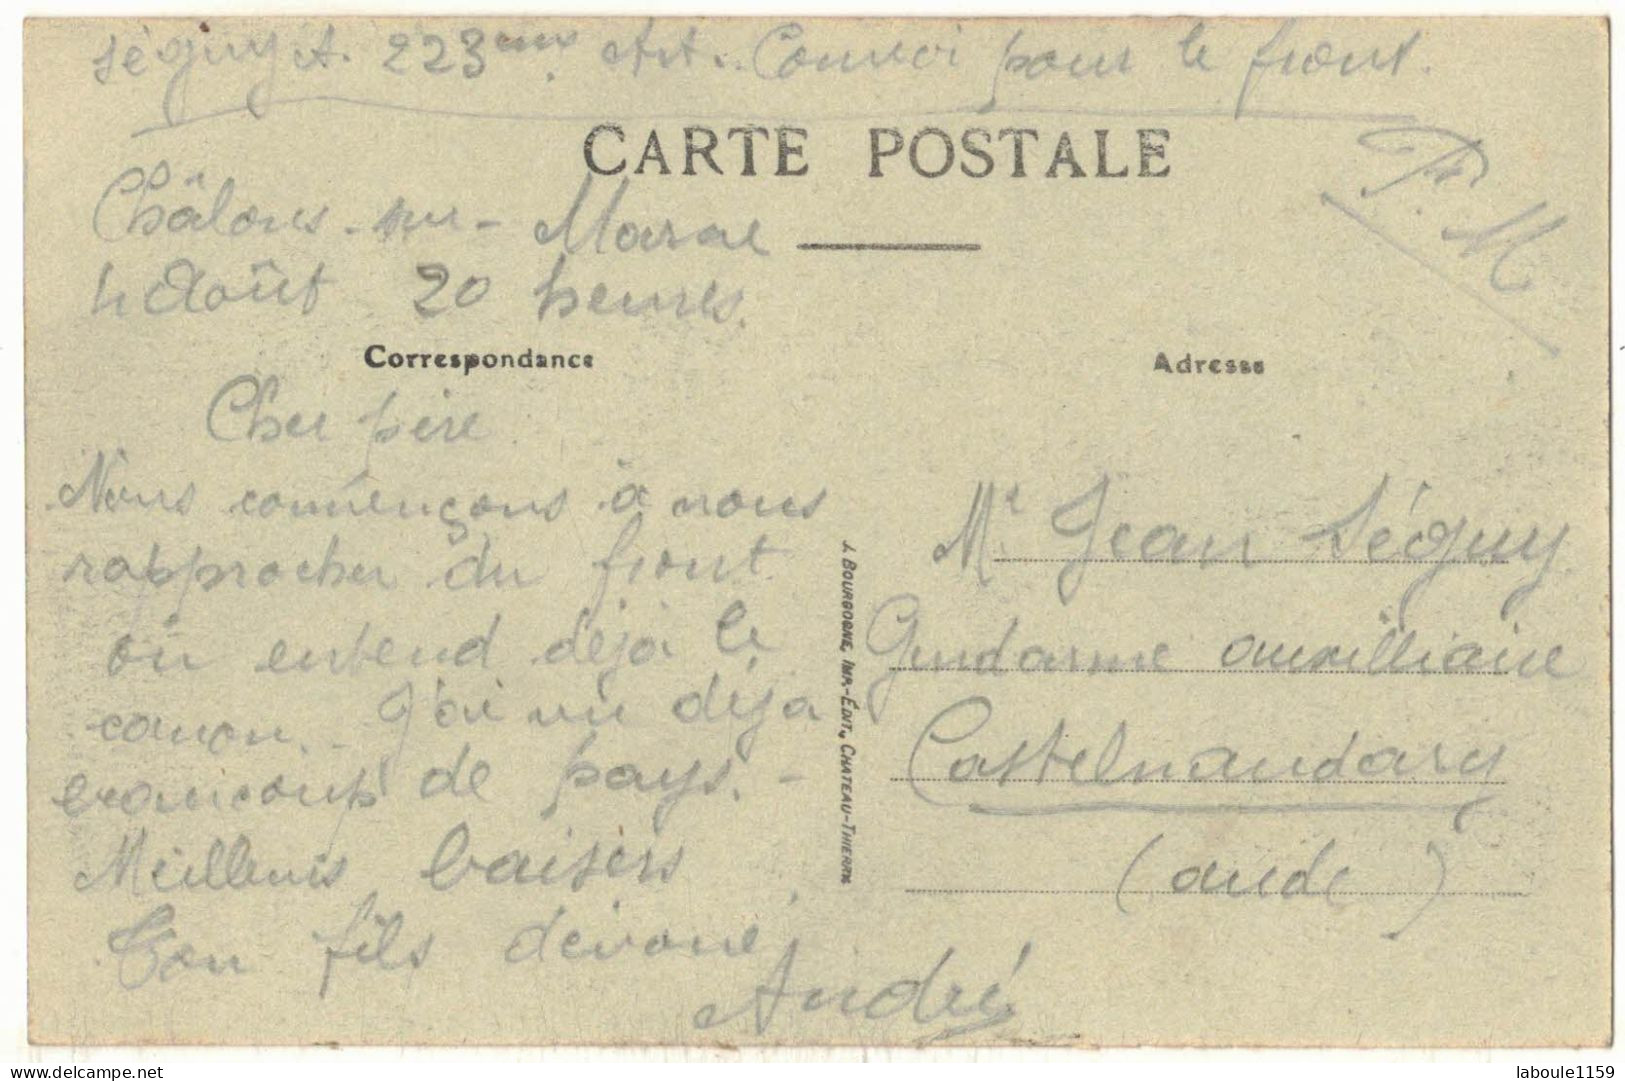 Séguy A. 223eme Art.. Convoi pour le front.
CARTE POSTALE
F. M
Châlons-sur-Marne
4 Août 20 heures.
Correspondance
Cher père
Nous commençons à nous
rapprocher du front.
on entend déjà le
canon. - J'ai vu déjà
beaucoup de pays. -
Meilleurs baisers.
Ton fils dévoué
André
J. BOURGOGNE, IMP.-ÉDIT., CHATEAU-THIERRY
Adresse
Mr Jean Séguy
Gendarme auxilliaire
Castelnaudary
(aude)
laboule1159